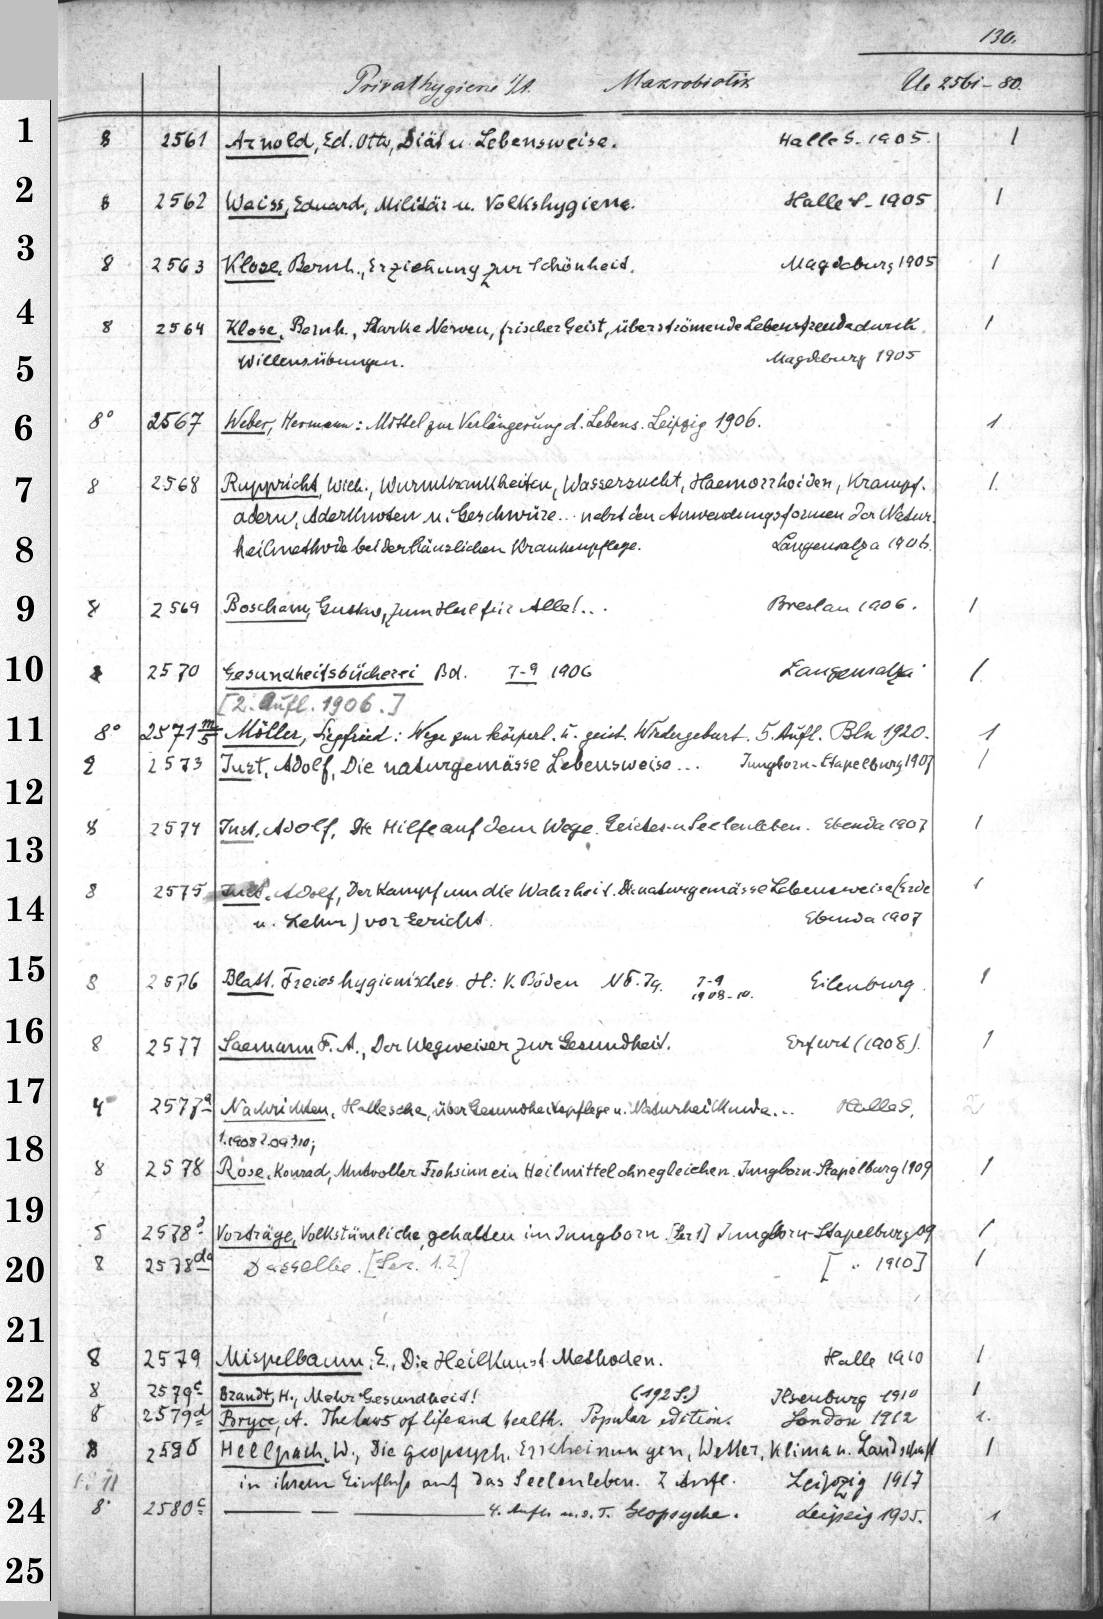 130.
Privathygiene Makrobiotik Ue 2561-80.
1
8 2561 Arnold, Ed. Otto, Diät u. Lebensweise. Halle S. 1905. 1
2
8 2562 Waiss, Eduard, Militär u. Volkshygiene. Halle S. 1905 1
3
8 2563 Klose, Bernh., Erziehung zur Schönheit. Magdeburg 1905 1
4
8 2564 Klose, Bernh., Starke Nerven, frischer Geist, überströmende Lebensfreude durch 1
5
Willensübungen. Magdeburg 1905
6
8° 2567 Weber, Hermann: Mittel zur Verlängerung d. Lebens. Leipzig 1906. 1
7
8 2568 Ruppricht, Wilh., Wurmkrankheiten, Wassersucht, Haemorrhoiden, Krampf- 1.
adern, Aderknoten u. Geschwüre... nebst den Anwendungsformen der Natur-
8
heilmethode bei der häuslichen Krankenpflege. Langensalza 1906.
9
8 2569 Boscham, Gustav, zum Heil für Alle!... Breslau 1906. 1
10
8 2570 Gesundheitsbücherei Bd. 7-9 1906 Langensalza 1
[2. Aufl. 1906.]
11
8° 2571 m/5 Möller, Siegfried: Wege zur körperl. u. geist. Wiedergeburt. 5. Aufl. Bln 1920. 1
2573 Just, Adolf, Die naturgemässe Lebensweise... Jungborn-Stapelburg 1907 1
12
8 2574 Just, Adolf, Die Hilfe auf dem Wege. Geistes- u Seelenleben. Ebenda 1907 1
13
8 2575 Just, Adolf, Der Kampf um die Wahrheit. Die naturgemässe Lebensweise (Erde 1
14
u. Lehm) vor Gericht. Ebenda 1907
15
8 2576 Blatt. Freies hygienisches. H: V. Böden N F. Jg. 7-9 Eilenburg. 1
1908-10.
16
8 2577 Saemann F. A., Der Wegweiser zur Gesundheit. Erfurt (1908). 1
17
4° 2577a Nachrichten, Hallesche, über Gesundheitspflege u. Naturheilkunde... Halle S. 2
18
1.1908 2.09/10;
8 2578 Rose, Konrad, Mutvoller Frohsinn ein Heilmittel ohnegleichen. Jungborn-Stapelburg 1909 1
19
2578 Vorträge, Volkstümliche, gehalten im Jungborn. [Ser 1] Jungborn-Stapelburg 09 1
20
8 2578da Dasselbe. [Ser. 1.2] [ " 1910] 1
21
8 2579 Mispelbaum, E., Die Heilkunst-Methoden. Halle 1910 1
22
8 2579c Brandt, H., Mehr Gesundheit! (192 S.) Ilsenburg 1910 1
8 2579d Bryce, A. The laws of life and health. Popular edition. London 1912 1.
23
8 2580 Hellpach, W., Die geopsych. Erscheinungen, Wetter, Klima u. Landschaft 1
in ihrem Einfluss auf das Seelenleben. 2 Aufl. Leipzig 1917
24
8° 2580c 4. Aufl. u. d. T. Geopsyche. Leipzig 1935. 1
25